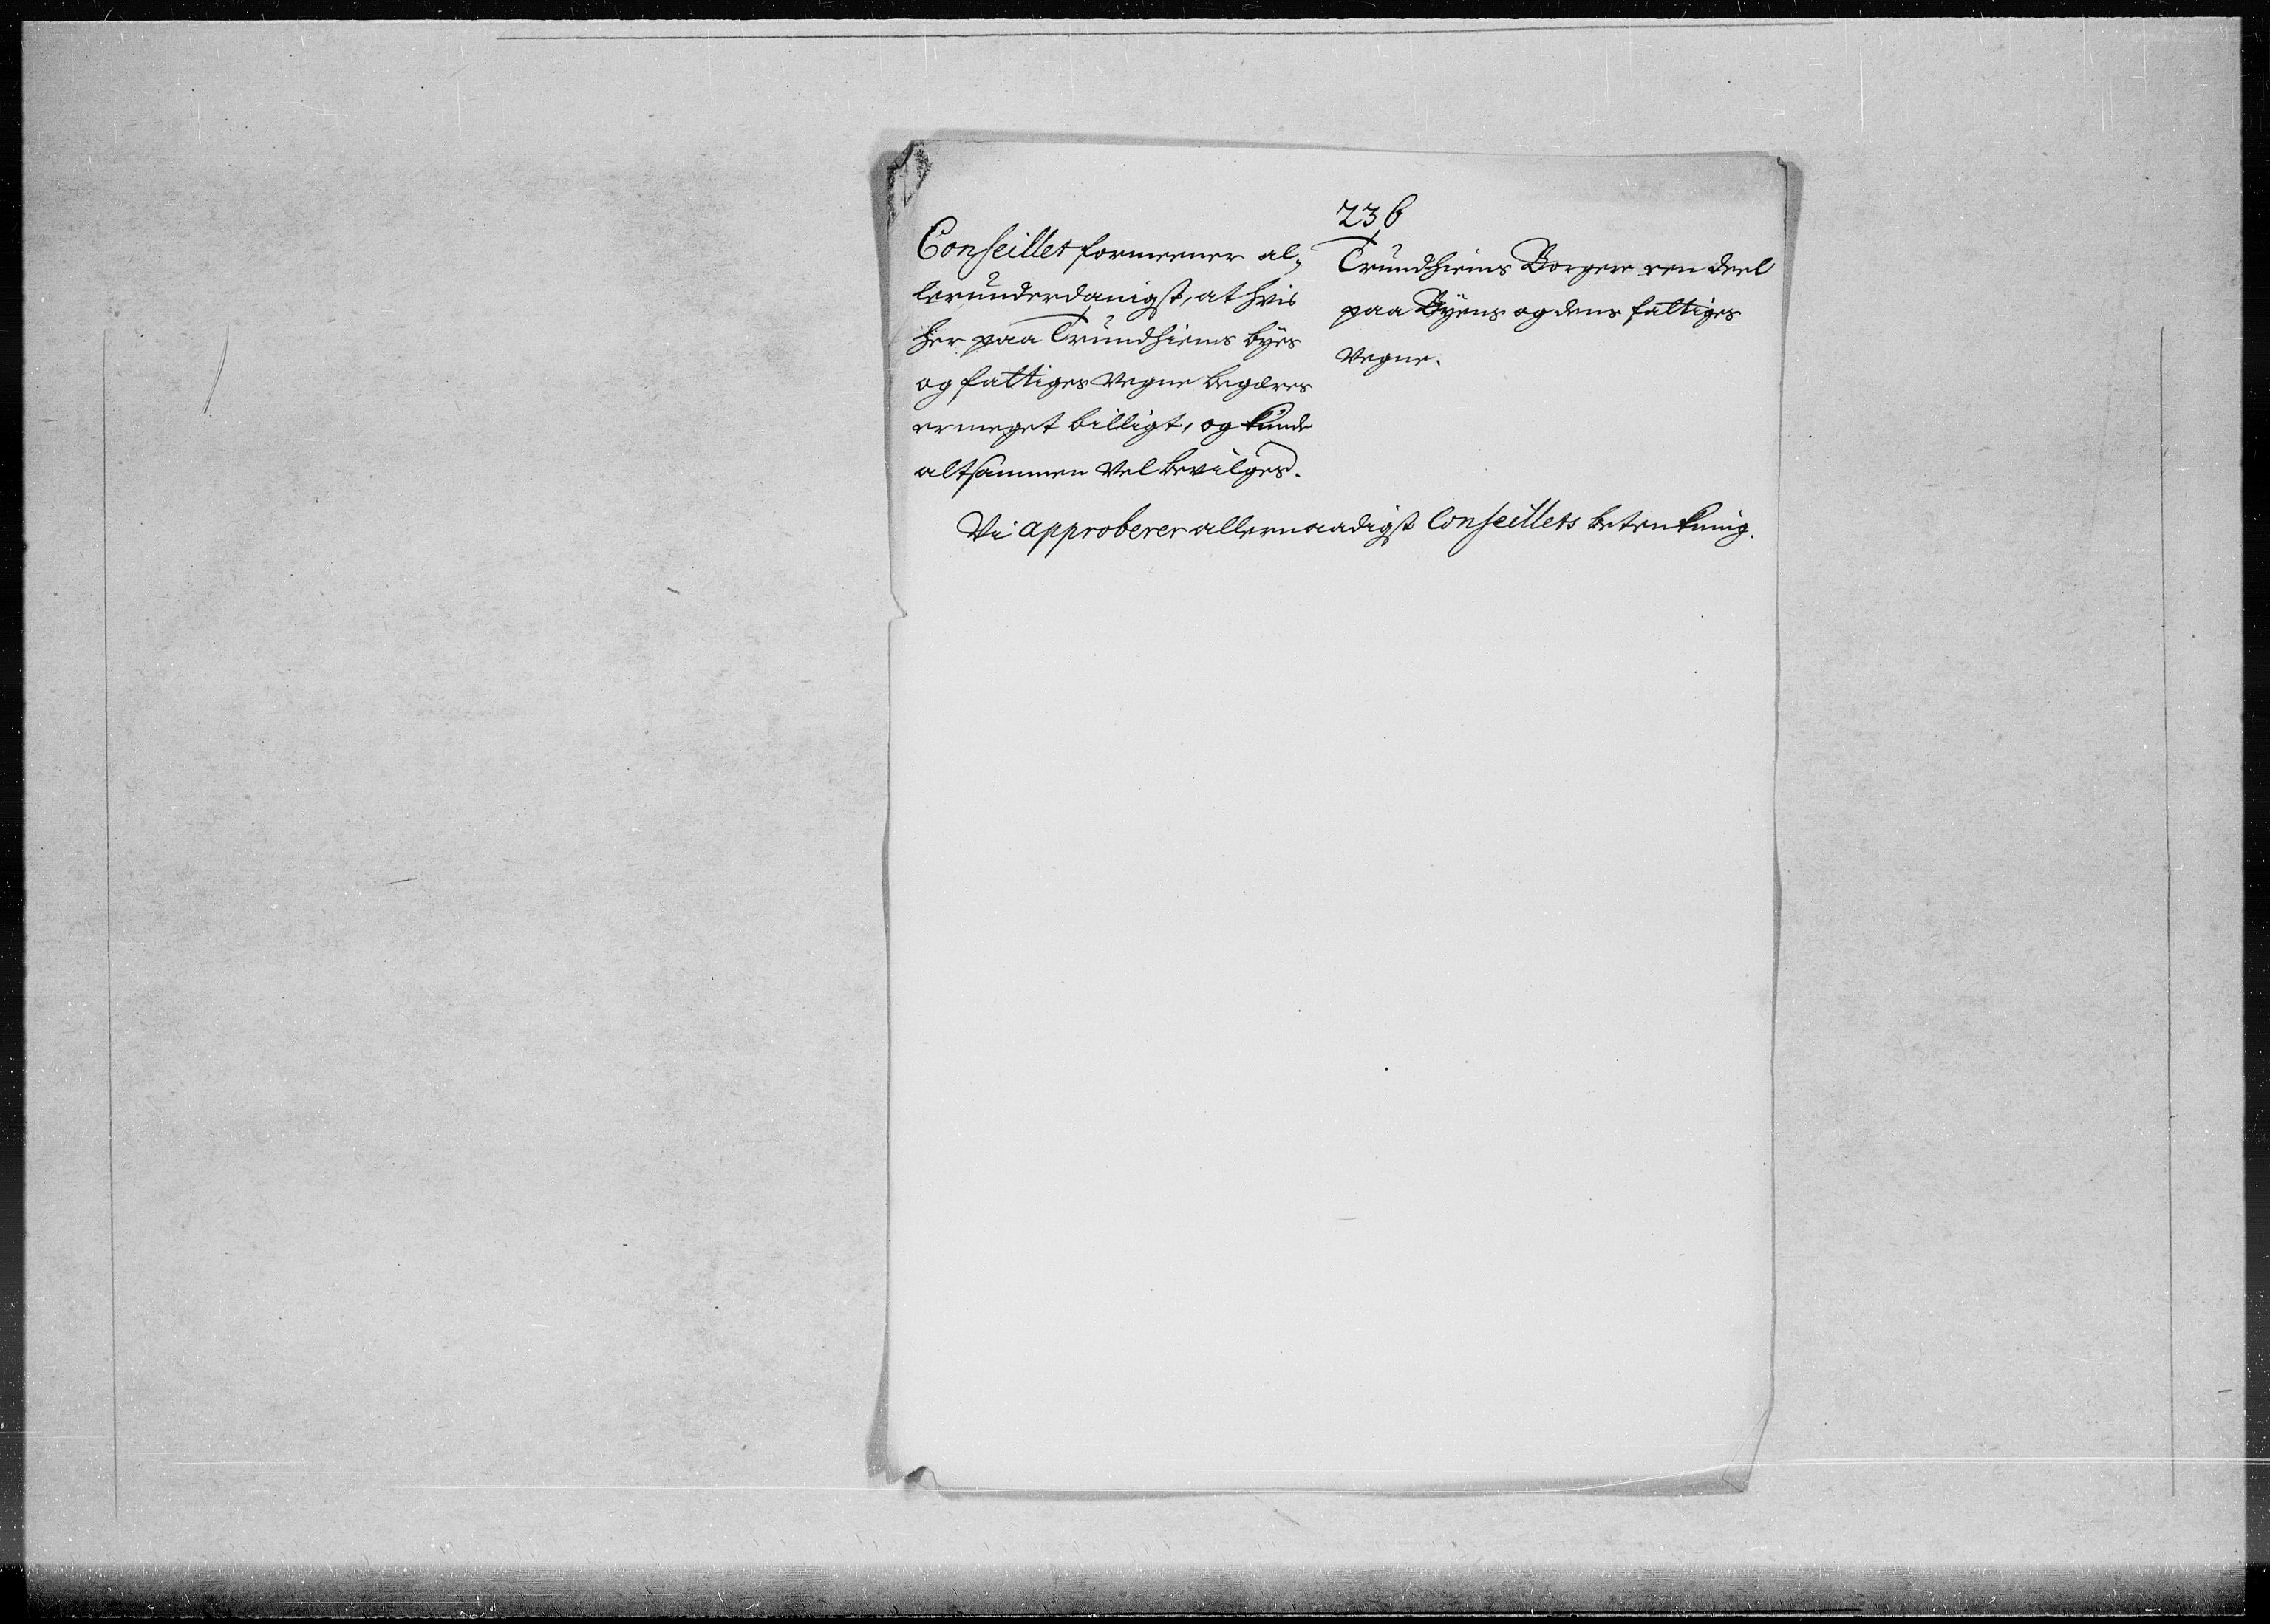 236
Conseillet formeener al„
lerunderdanigst, at hvis
her paa Trundhiems byes
og fattiges Vegne begæres
er meget billigt, og kunde
altsammen Vel bevilges.
Trundhiems Borgere een deel
paa Byens og dens fattiges
Vegne.
Vi approberer allernaadigst Conseillets betenkning.